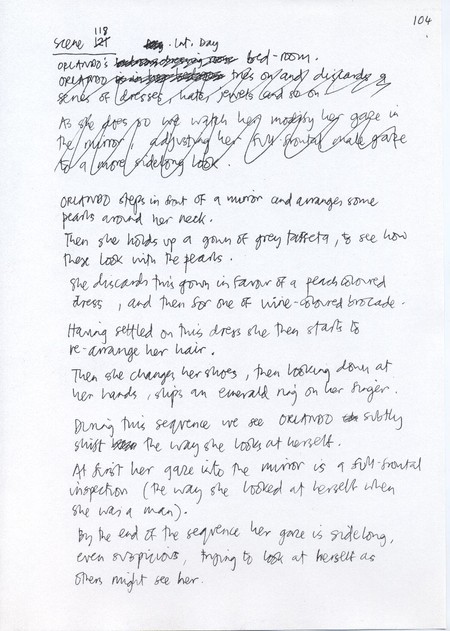 104
118
Scene 121 Int. Day
ORLANDO'S bed-room.
ORLANDO tries on and discards a
series of dresses, hats, jewels and so on
As she does so we watch her modify her gaze in
the mirror, adjusting her full frontal male gaze
to a more sidelong look.
ORLANDO steps in front of a mirror and arranges some
pearls around her neck.
Then she holds up a gown of grey taffeta, to see how
these look with the pearls.
She discards this gown in favour of a peach coloured
dress, and then for one of wine-coloured brocade.
Having settled on this dress she then starts to
re-arrange her hair.
Then she changes her shoes, then looking down at
her hands, slips an emerald ring on her finger.
During this sequence we see ORLANDO subtly
shift the way she looks at herself.
At first her gaze into the mirror is a full-frontal
inspection (the way she looked at herself when
she was a man).
By the end of the sequence her gaze is sidelong,
even suspicious, trying to look at herself as
others might see her.